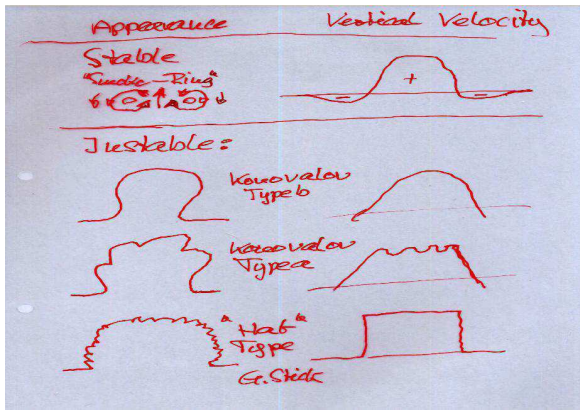 Appearance Vertical Velocity
Stable
"Smoke-Ring"
+
- -
Instable:
Konovalov
Type b
Konovalov
Type a
"Hat"
Type